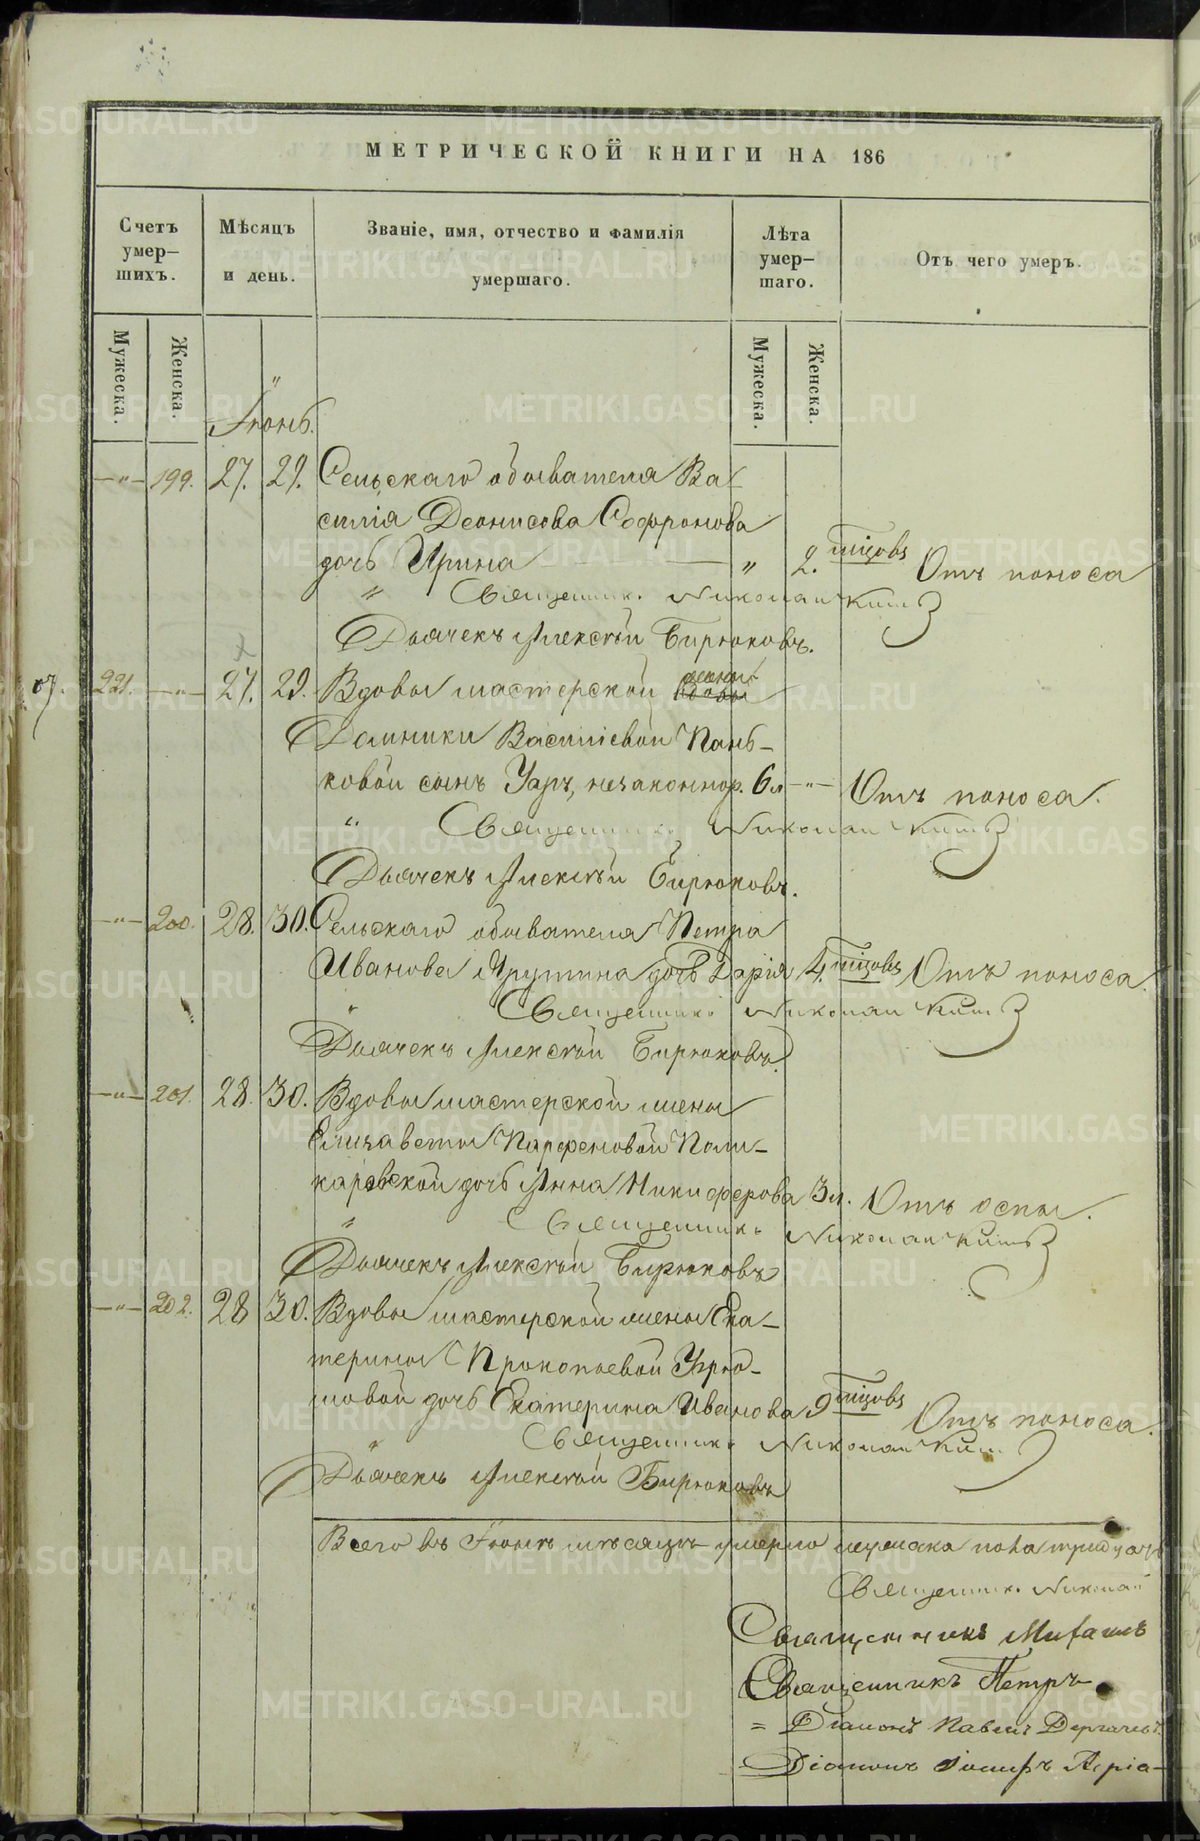 МЕТРИЧЕСКОЙ КНИГИ НА 186
Счетъ умер-шихъ.
Мѣсяцъ и день.
Званіе, имя, отчество и фамилія умершаго.
Лѣта умер-шаго.
Отъ чего умеръ.
Мужеска.
Женска.
Мужеска.
Женска.
Іюнь.
—"— 199. 27. 29. Сельскаго обывателя Ва-
силія Деонисова Софронова
дочь Ирина — " 2. мѣсяцовъ Отъ поноса
" Священникъ Николай
Дьячекъ Алексѣй Бирюковъ.
221. —"— 27. 29. Вдовы мастерской жены
Домники Васильевой Пань-
ковой сынъ Уаръ, незаконнор. 6 л —"— Отъ поноса.
" Священникъ Николай
Дьячекъ Алексѣй Бирюковъ.
—"— 200. 28. 30. Сельскаго обывателя Петра
Иванова дочь Дарія 4. мѣсяцовъ Отъ поноса.
" Священникъ Николай
Дьячекъ Алексѣй Бирюковъ.
—"— 201. 28. 30. Вдовы мастерской жены
Елизаветы Парфеновой Поли-
карповской дочь Анна Никифорова 3 л. Отъ оспы.
" Священникъ Николай
Дьячекъ Алексѣй Бирюковъ
—"— 202. 28 30. Вдовы мастерской жены Ека-
терины Прокопьевой
дочь Екатерина Иванова 9 мѣсяцовъ Отъ поноса.
" Священникъ Николай
Дьячекъ Алексѣй Бирюковъ
Всего въ Іюнѣ мѣсяцѣ умерло мужеска пола тридцать
Священникъ Николай
Священникъ Михаилъ
Священникъ Петръ
= Діаконъ Павелъ Дергачевъ.
Діаконъ Іосифъ
METRIKI.GASO-URAL.RU